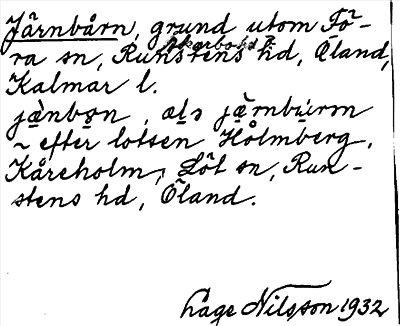 Järnbårn, grund utom Fö-
ra sn, Åkerbo hd
Runstens hd, Öland,
Kalmar l.
jänbon, als järnburen
~ efter lotsen Holmberg,
Kåreholm, Löt sn, Run-
stens hd, Öland.
Lage Nilsson 1932